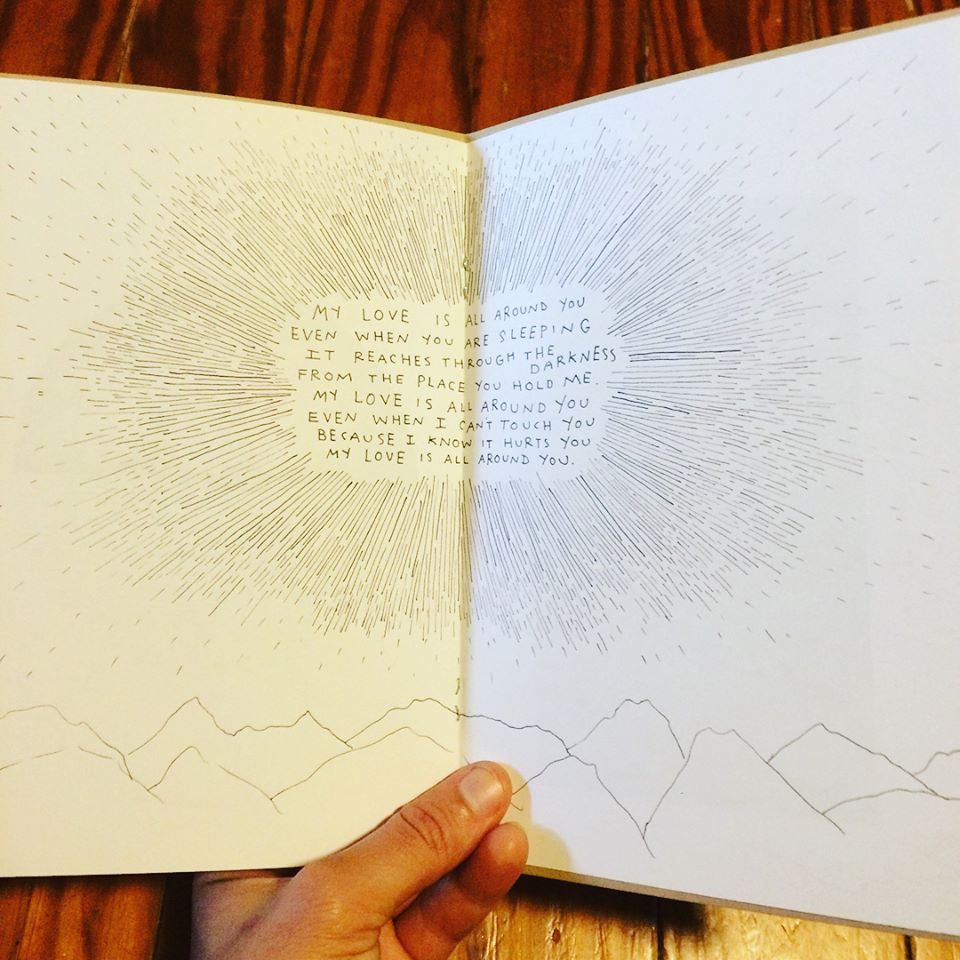 MY LOVE IS ALL AROUND YOU
EVEN WHEN YOU ARE SLEEPING
IT REACHES THROUGH THE DARKNESS
FROM THE PLACE YOU HOLD ME.
MY LOVE IS ALL AROUND YOU
EVEN WHEN I CAN'T TOUCH YOU
BECAUSE I KNOW IT HURTS YOU
MY LOVE IS ALL AROUND YOU.